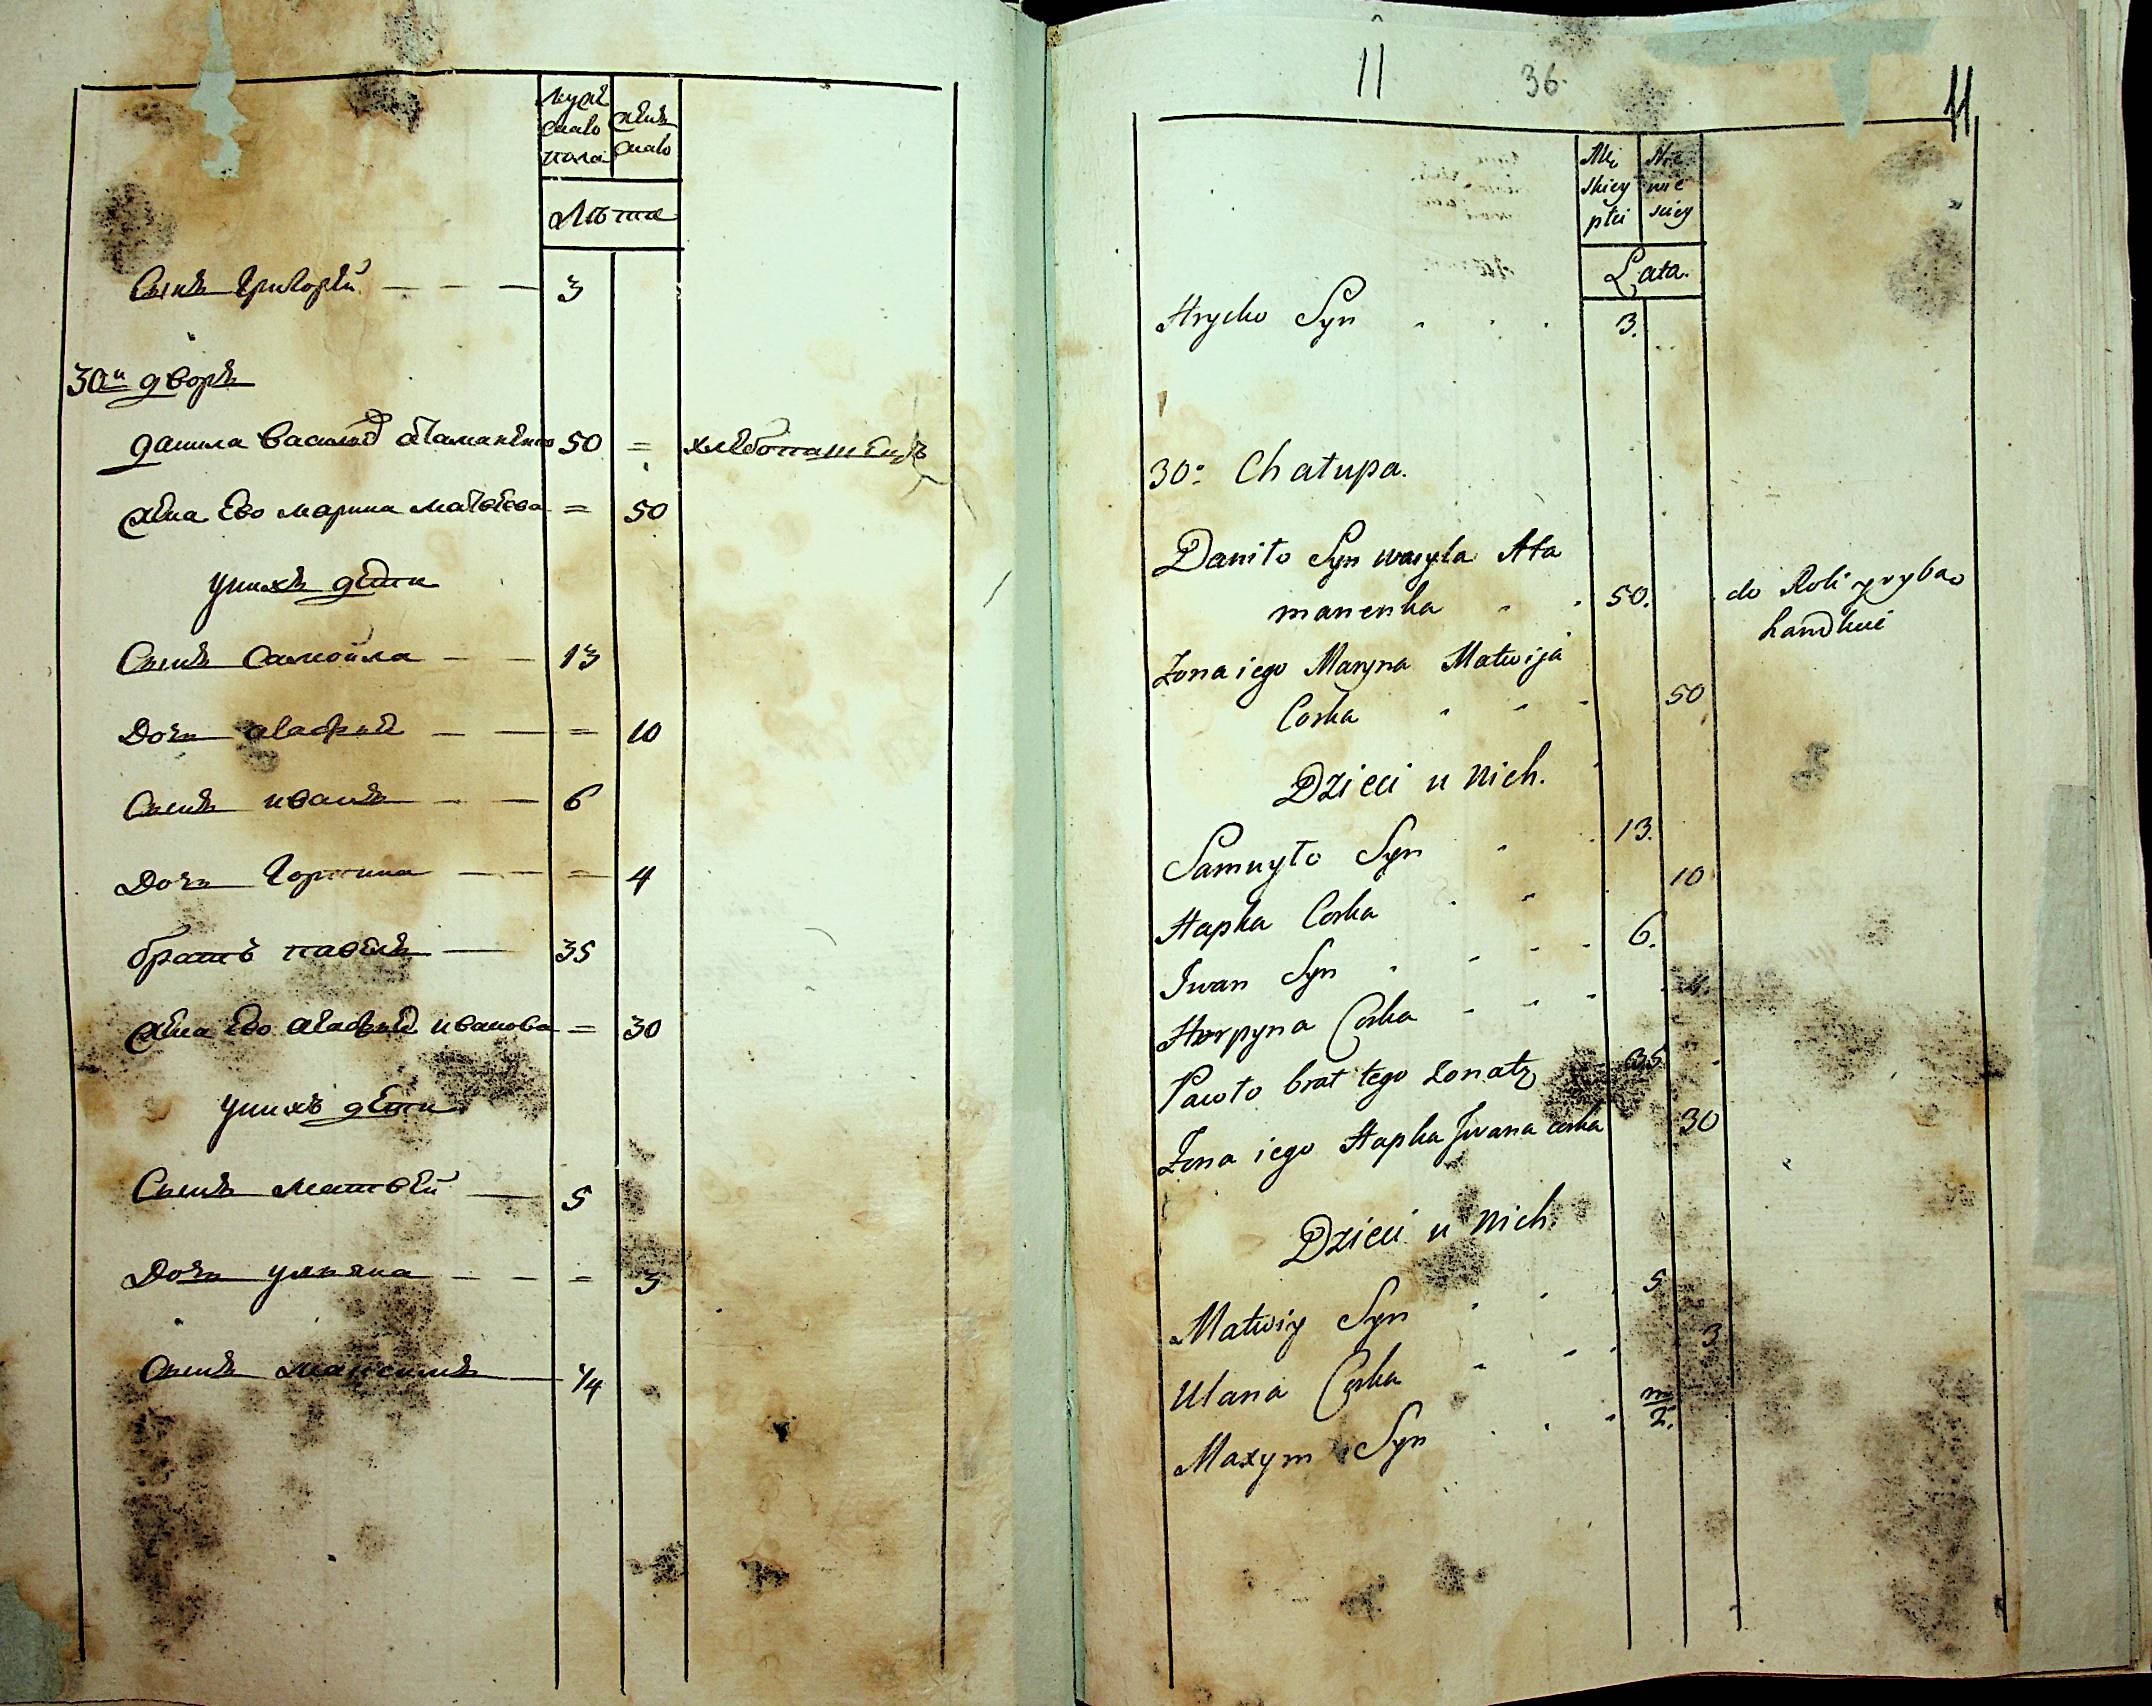 мужеска пола
женска
Лѣта
Сынъ Григорей — — — 3
30й дворъ
Данила Василев Атаманенко 50 = хлебопашецъ
Жена Ево марина матвѣева = 50
унихъ дети
Сынъ Самойла — — 13
Дочь Агафия — — = 10
Сынъ иванъ — — 6
Дочь Горпина — — = 4
братъ павелъ — 35
Жена Ево Агафия иванова = 30
унихъ дети
Сынъ матвей — 5
Дочь ульяна — — = 3
Сынъ максимъ — 1/4
11 36. 11
Męskiey płci
Niewieściey
Lata.
Hryćko Syn 3.
30a Chałupa.
Daniło Syn wasyla Ata
manenka 50. do Roli przyba
Landkui
Żona iego Maryna Matwija
Corka 50
Dzieci u Nich.
Samuyło Syn 13.
Hapka Corka 10
Iwan Syn 6.
Horpyna Corka 4.
Pawło brat tego żonaty 35
Żona iego Hapka Jwana corka 30
Dzieci u Nich.
Matwiy Syn 5
Ulana Corka 3
Maxym Syn m/2.